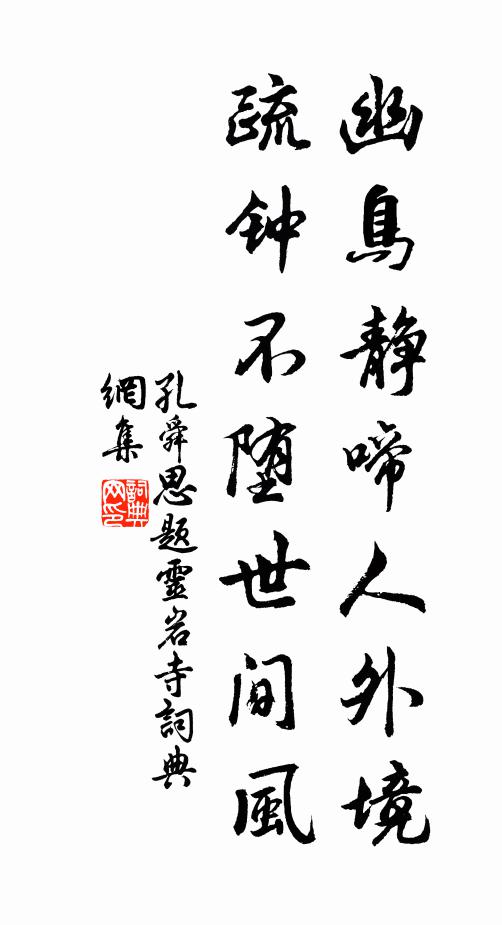 幽鳥静啼人外境
疏钟不堕世间風
孔舜思題靈岩寺詞典
網集
詞典
网印